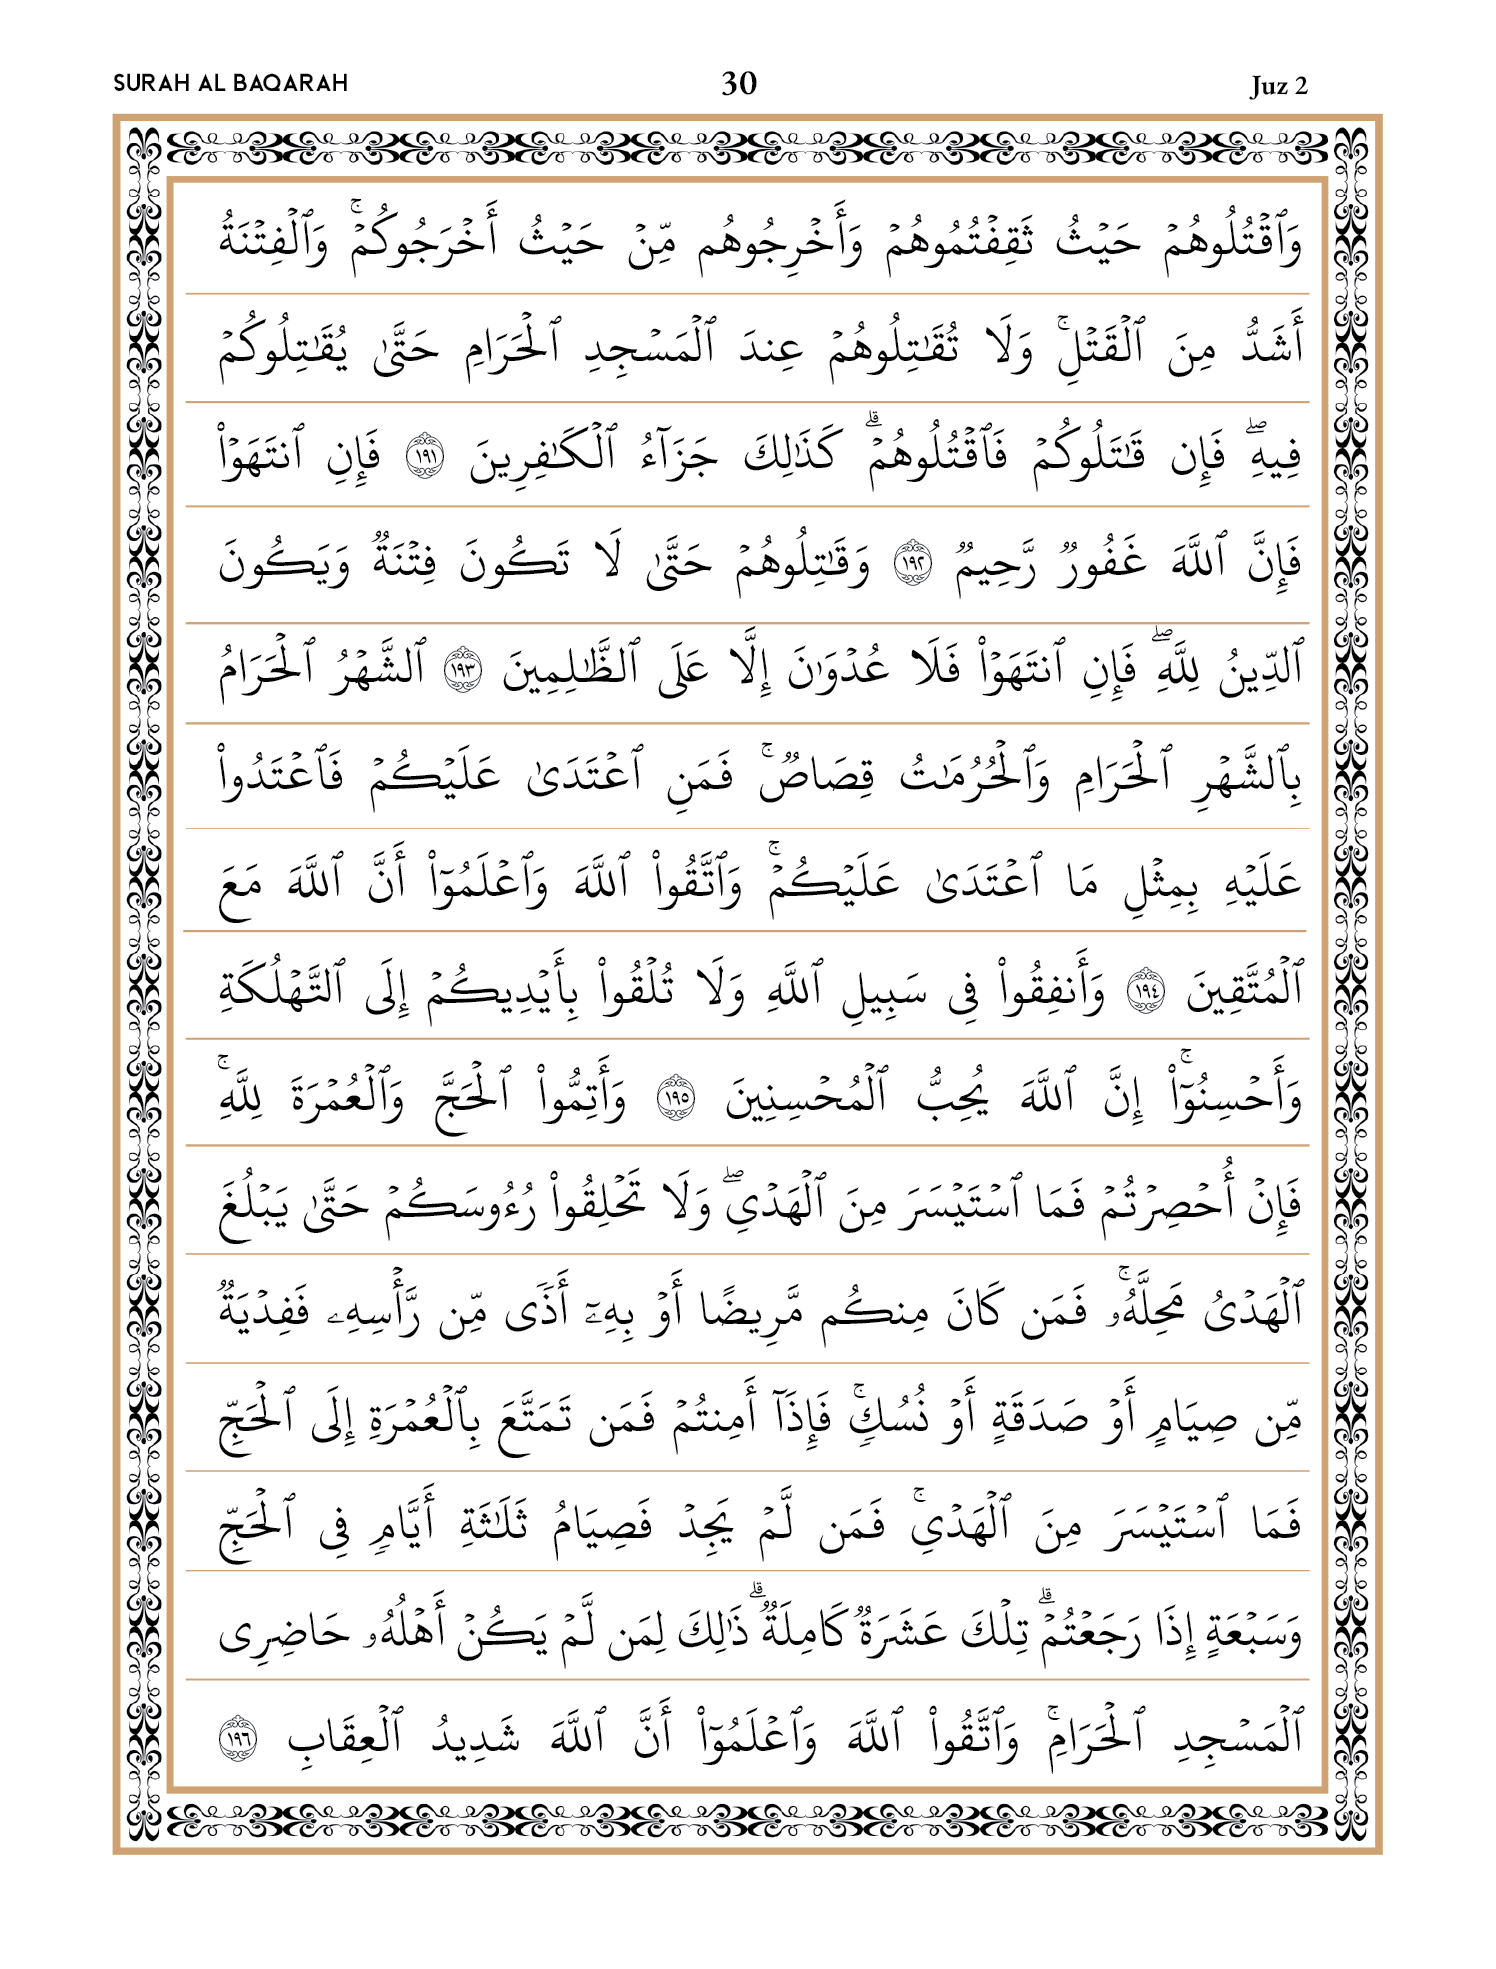 SURAH AL BAQARAH 30 Juz 2
وَٱقۡتُلُوهُمۡ حَيۡثُ ثَقِفۡتُمُوهُمۡ وَأَخۡرِجُوهُم مِّنۡ حَيۡثُ أَخۡرَجُوكُمۡۚ وَٱلۡفِتۡنَةُ
أَشَدُّ مِنَ ٱلۡقَتۡلِۚ وَلَا تُقَٰتِلُوهُمۡ عِندَ ٱلۡمَسۡجِدِ ٱلۡحَرَامِ حَتَّىٰ يُقَٰتِلُوكُمۡ
فِيهِۖ فَإِن قَٰتَلُوكُمۡ فَٱقۡتُلُوهُمۡۗ كَذَٰلِكَ جَزَآءُ ٱلۡكَٰفِرِينَ ١٩١ فَإِنِ ٱنتَهَوۡاْ
فَإِنَّ ٱللَّهَ غَفُورٞ رَّحِيمٞ ١٩٢ وَقَٰتِلُوهُمۡ حَتَّىٰ لَا تَكُونَ فِتۡنَةٞ وَيَكُونَ
ٱلدِّينُ لِلَّهِۖ فَإِنِ ٱنتَهَوۡاْ فَلَا عُدۡوَٰنَ إِلَّا عَلَى ٱلظَّٰلِمِينَ ١٩٣ ٱلشَّهۡرُ ٱلۡحَرَامُ
بِٱلشَّهۡرِ ٱلۡحَرَامِ وَٱلۡحُرُمَٰتُ قِصَاصٞۚ فَمَنِ ٱعۡتَدَىٰ عَلَيۡكُمۡ فَٱعۡتَدُواْ
عَلَيۡهِ بِمِثۡلِ مَا ٱعۡتَدَىٰ عَلَيۡكُمۡۚ وَٱتَّقُواْ ٱللَّهَ وَٱعۡلَمُوٓاْ أَنَّ ٱللَّهَ مَعَ
ٱلۡمُتَّقِينَ ١٩٤ وَأَنفِقُواْ فِي سَبِيلِ ٱللَّهِ وَلَا تُلۡقُواْ بِأَيۡدِيكُمۡ إِلَى ٱلتَّهۡلُكَةِ
وَأَحۡسِنُوٓاْۚ إِنَّ ٱللَّهَ يُحِبُّ ٱلۡمُحۡسِنِينَ ١٩٥ وَأَتِمُّواْ ٱلۡحَجَّ وَٱلۡعُمۡرَةَ لِلَّهِۚ
فَإِنۡ أُحۡصِرۡتُمۡ فَمَا ٱسۡتَيۡسَرَ مِنَ ٱلۡهَدۡيِۖ وَلَا تَحۡلِقُواْ رُءُوسَكُمۡ حَتَّىٰ يَبۡلُغَ
ٱلۡهَدۡيُ مَحِلَّهُۥۚ فَمَن كَانَ مِنكُم مَّرِيضًا أَوۡ بِهِۦٓ أَذٗى مِّن رَّأۡسِهِۦ فَفِدۡيَةٞ
مِّن صِيَامٍ أَوۡ صَدَقَةٍ أَوۡ نُسُكٖۚ فَإِذَآ أَمِنتُمۡ فَمَن تَمَتَّعَ بِٱلۡعُمۡرَةِ إِلَى ٱلۡحَجِّ
فَمَا ٱسۡتَيۡسَرَ مِنَ ٱلۡهَدۡيِۚ فَمَن لَّمۡ يَجِدۡ فَصِيَامُ ثَلَٰثَةِ أَيَّامٖ فِي ٱلۡحَجِّ
وَسَبۡعَةٍ إِذَا رَجَعۡتُمۡۗ تِلۡكَ عَشَرَةٞ كَامِلَةٞۗ ذَٰلِكَ لِمَن لَّمۡ يَكُنۡ أَهۡلُهُۥ حَاضِرِي
ٱلۡمَسۡجِدِ ٱلۡحَرَامِۚ وَٱتَّقُواْ ٱللَّهَ وَٱعۡلَمُوٓاْ أَنَّ ٱللَّهَ شَدِيدُ ٱلۡعِقَابِ ١٩٦